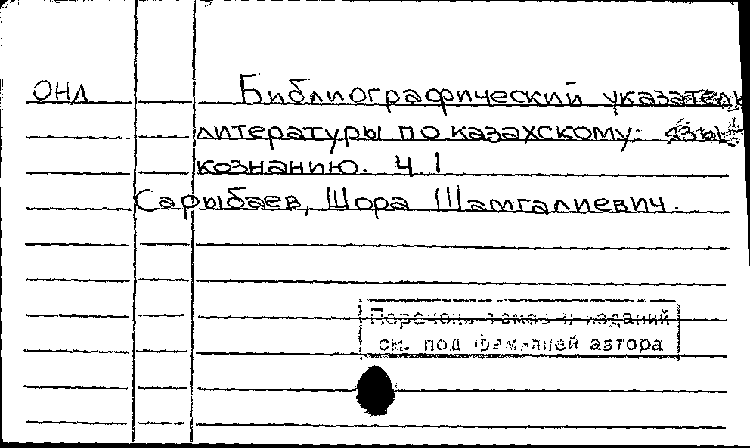 ОНЛ Библиографический указатель
литературы по казахскому языко-
кознанию. Ч. 1
Сарыбаев, Шора Шамгалиевич.
Перечень томов и изданий
см. под фамилией автора